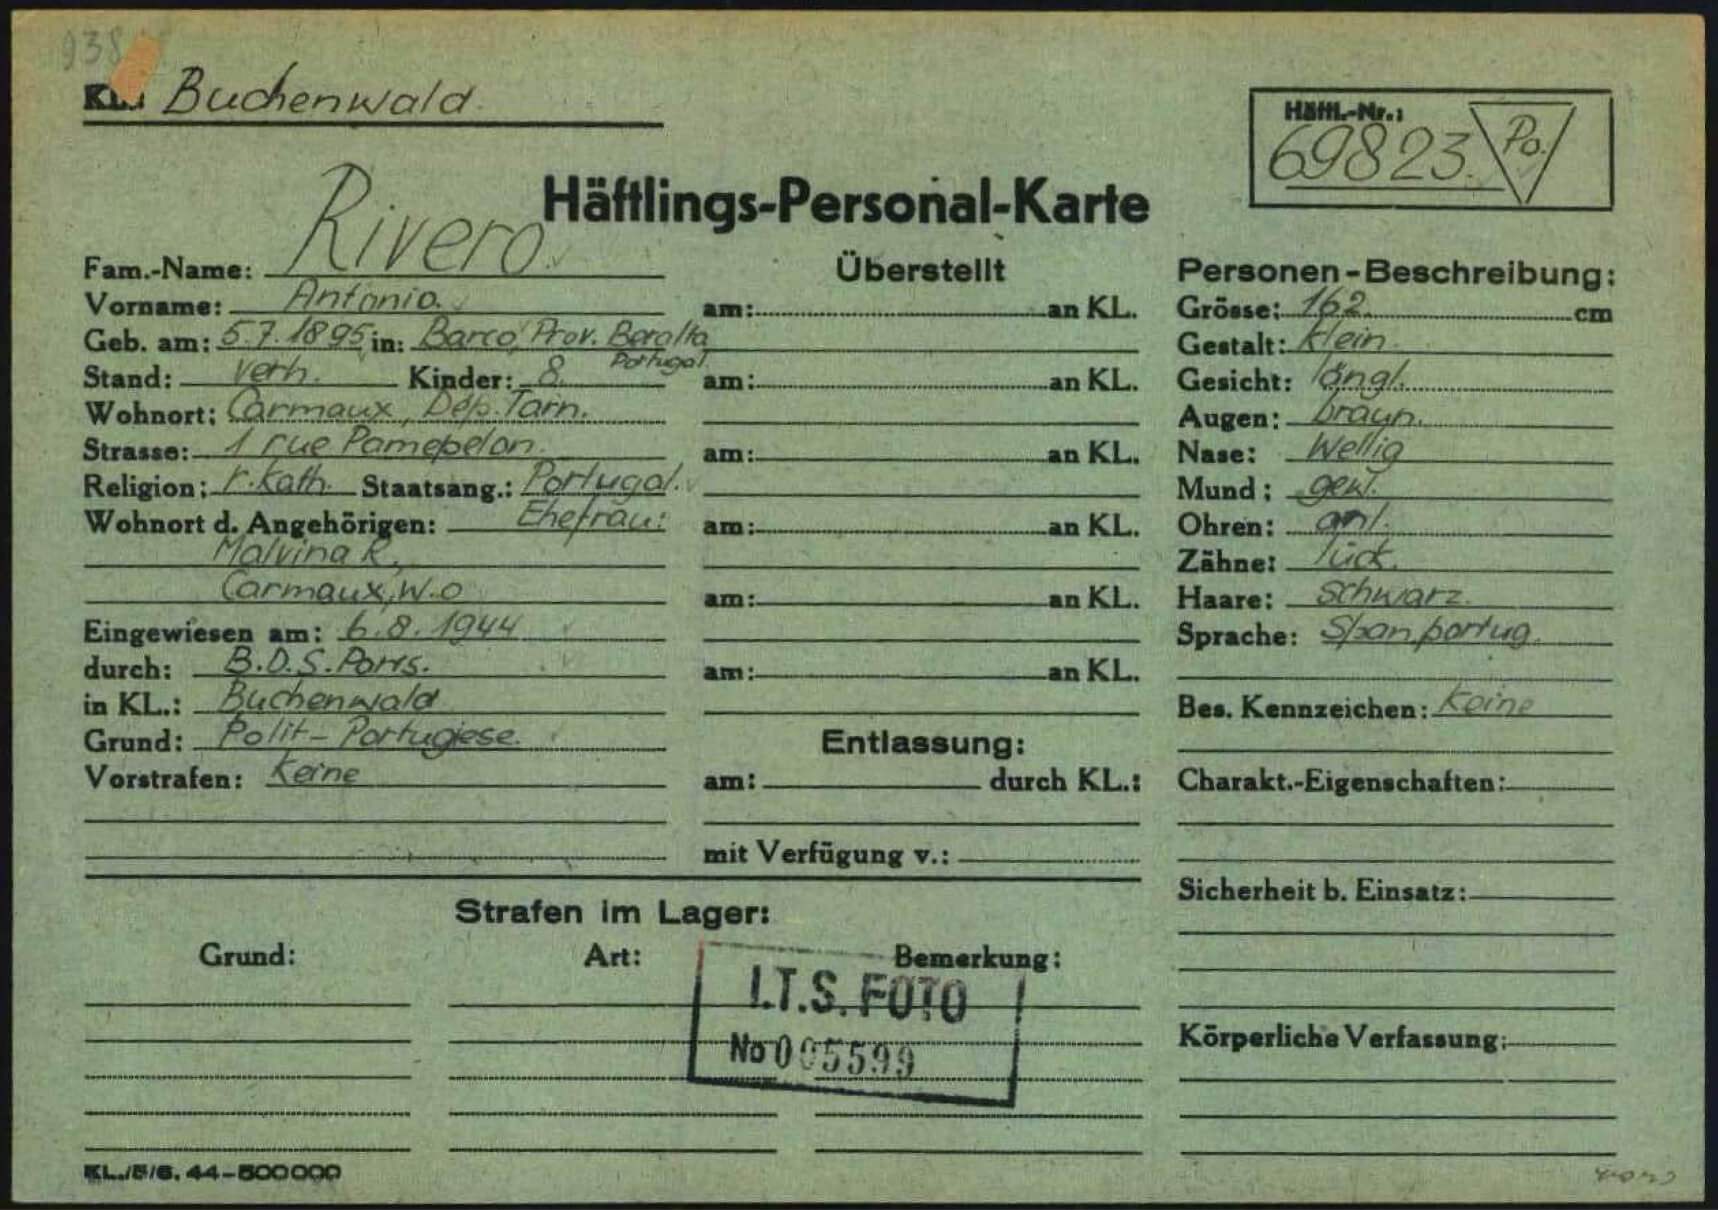 938
KL.: Buchenwald
Häftl.-Nr.:
69823. Po.
Häftlings-Personal-Karte
Fam.-Name: Rivero
Vorname: Antonio.
Geb. am: 5.7.1895 in: Barco, Prov. Beralta
Portugal
Stand: verh. Kinder: 8.
Wohnort: Carmaux, Dép. Tarn.
Strasse: 1 rue Pamepelon.
Religion: r. Kath. Staatsang.: Portugal.
Wohnort d. Angehörigen: Ehefrau:
Malvina R.,
Carmaux, W.O
Eingewiesen am: 6.8.1944
durch: B.D.S. Paris.
in KL.: Buchenwald
Grund: Polit - Portugiese.
Vorstrafen: Keine
Überstellt
am: an KL.
am: an KL.
am: an KL.
am: an KL.
am: an KL.
am: an KL.
Entlassung:
am: durch KL.:
mit Verfügung v.:
Personen-Beschreibung:
Grösse: 162. cm
Gestalt: Klein.
Gesicht: längl.
Augen: braun.
Nase: Wellig
Mund: gew.
Ohren: anl.
Zähne: lück.
Haare: Schwarz.
Sprache: Span, portug.
Bes. Kennzeichen: Keine
Charakt.-Eigenschaften:
Sicherheit b. Einsatz:
Körperliche Verfassung:
Strafen im Lager:
Grund: Art: Bemerkung:
I.T.S. FOTO
No 005599
KL./5/6. 44-500000